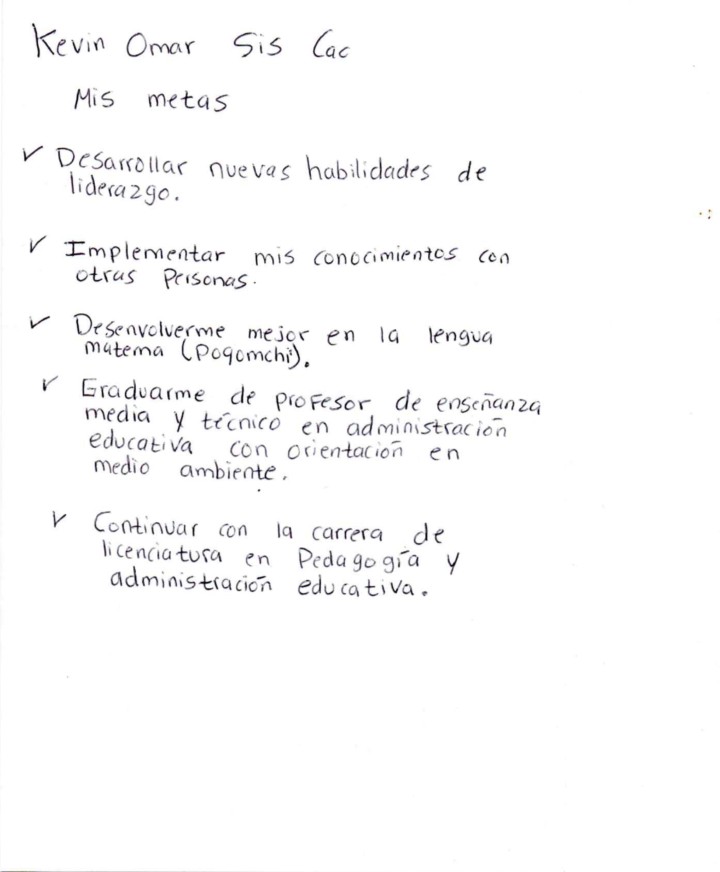 Kevin Omar Sis Cac
Mis metas
✓ Desarrollar nuevas habilidades de
liderazgo.
✓ Implementar mis conocimientos con
otras personas.
✓ Desenvolverme mejor en la lengua
materna (Poqomchi).
✓ Graduarme de profesor de enseñanza
media y técnico en administración
educativa con orientación en
medio ambiente.
✓ Continuar con la carrera de
licenciatura en Pedagogía y
administración educativa.